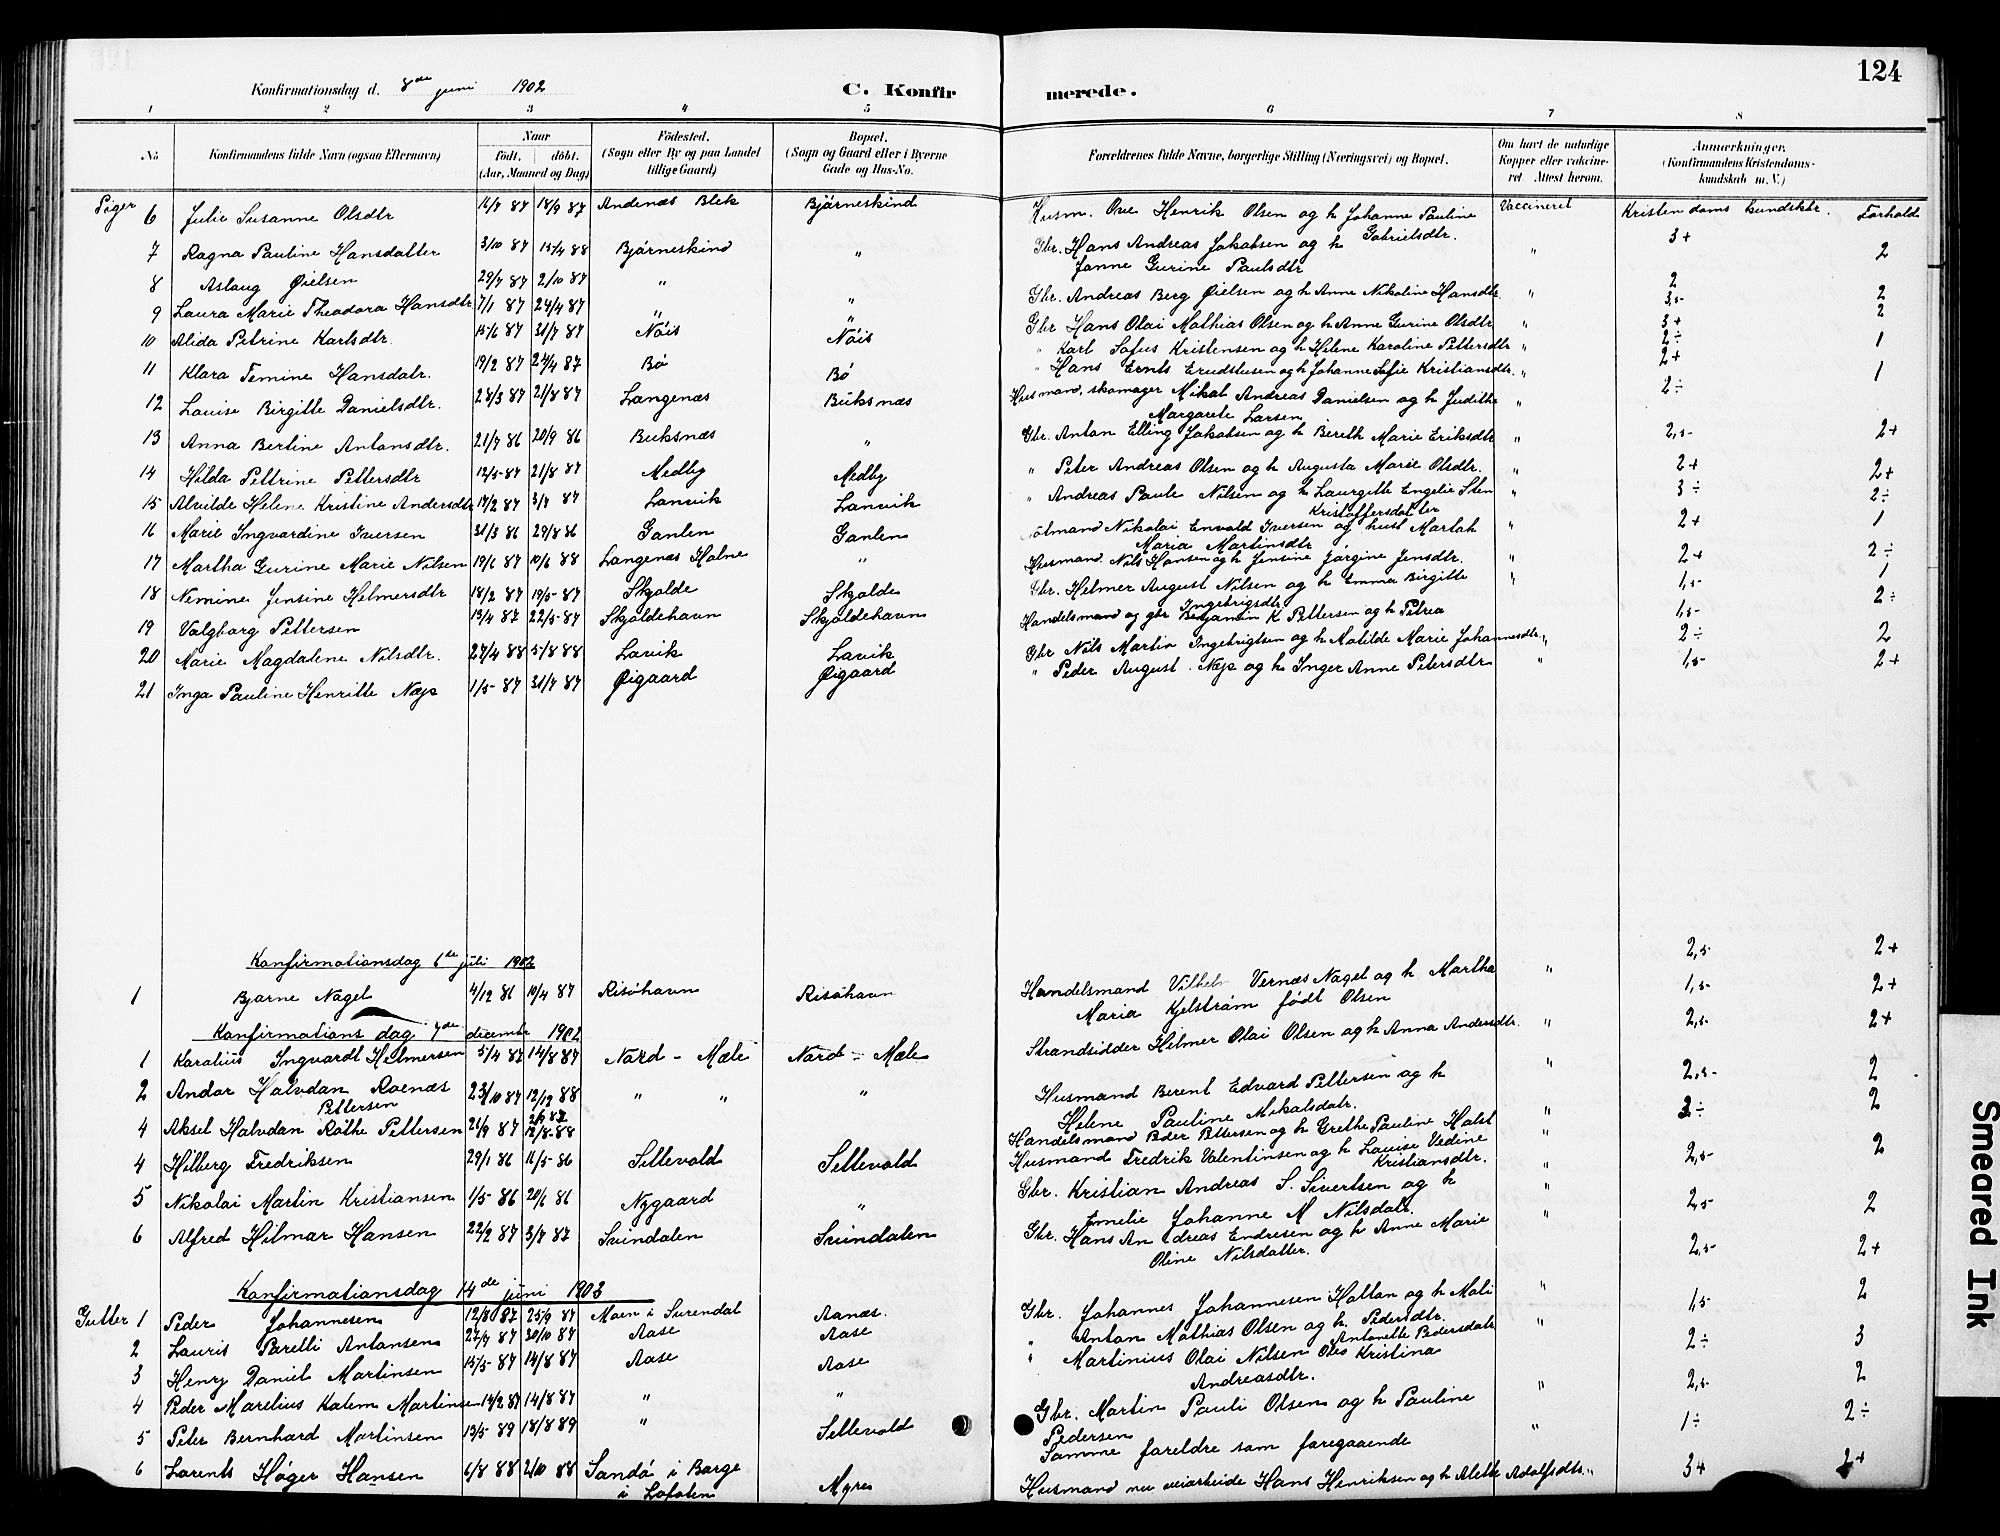 124
Konfirmationsdag d. 8de juni 1902 C. Konfirmerede.
1 2 3 4 5 6 7 8
No Konfirmandens fulde Navn (ogsaa Efternavn) Naar födt. döbt. (Aar, Maaned og Dag) Födested. (Sogn eller By og paa Landet tillige Gaard) Bopæl. (Sogn og Gaard eller i Byerne Gade og Hus-No. Forældrenes fulde Navne, borgerlige Stilling (Næringsvei) og Bopæl. Om havt de naturlige Kopper eller vaccineret. Attest herom. Anmærkninger. (Konfirmandens Kristendomskundskab m. V.)
Piger 6 Julie Susanne Olsdtr 16/7 87 18/9 87 Andenæs Blek Bjørneskind Husm. Ove Henrik Olsen og h Johanne Pauline Gabrielsdtr. Vaccineret Kristendoms kundskbr. Forhold
3+ 2
7 Ragna Pauline Hansdatter 3/10 87 15/4 88 Bjørneskind " Gbr. Hans Andreas Jakobsen og h Janne Gurine Paulsdtr "
8 Aslaug Øielsen 29/7 87 2/10 87 " Gbr. Andreas Berg Øielsen og h Anne Nikoline Hansdtr. " 2 2
9 Laura Marie Theodora Hansdtr 7/1 87 24/4 87 " " Gbr Hans Olai Mathias Olsen og h Anne Gurine Olsdtr " 3,5- 2
10 Alida Petrine Karlsdtr. 15/6 87 31/7 87 Nöis Nöis " Karl Sofus Kristensen og h Helene Karoline Pettersdtr " 3+ 2÷ 1
11 Klara Temine Hansdatr. 19/2 87 24/4 87 Bö Bö " Hans Ernts og h Johanne Sofie Kristiansdtr. " 2+ 1
12 Louise Birgitte Danielsdtr. 23/3 87 21/8 87 Langenæs Buksnæs Husmand, skomager Mikal Andreas Danielsen og h Judithe Margarete Larsen " 2÷
13 Anna Bertine Antonsdtr. 21/7 86 20/9 86 Buksnæs " Gbr. Anton Elling Jakobsen og h Bereth Marie Eriksdtr " 2,5- 2+
14 Hilda Pettrine Pettersdtr 12/5- 87 21/8 87 Medby Medby " Peter Andreas Olsen og h Augusta Marie Olsdtr. " 2+ 2+
15 Alvilde Helene Kristine Andersdtr 17/2 87 3/7 87 Lanvik Lanvik " Andreas Paule Nilsen og h Laurgitte Engelie Sten Kristoffersdatter " 3÷ 2÷
16 Marie Ingvardine Iversen 31/3 86 29/8 86 Ganlen Ganlen Nikolai Envald Iversen og hust Martah Maria Martinsdtr " 2+ 1
17 Martha Gurine Marie Nilsen 19/6 87 10/6 88 Langenæs Holme " Husmand. Nils Hansen og h Jensine Jørgine Jensdtr. " 2+ 2÷
18 Nemine Jensine Helmersdtr 18/2 87 19/5- 87 Skjolde Skjolde Gbr. Helmer August Nilsen og h Emma Birgitte Ingebrigsdtr " 1,5- 1
19 Valgborg Pettersen 13/4 87 22/5- 87 Skjoldehavn Skjoldehavn Handelsmand og gbr Benjamin K Pettersen og h Petrea 1,5- 2÷
20 Marie Magdalene Nilsdtr. 27/4 88 5/8 88 Lavik Lavik Gbr Nils Martin Ingebrigtsen og h Matilde Marie Johannesdtr " 2÷ 2
21 Inga Pauline Henritte Næss 1/5- 87 31/7 87 Øigaard Øigaard " Peder August. Næss og h Inger Anne Petersdtr " 1,5- 2+
Konfirmationsdag 6de juli 1902 2,5- 2+
1 Bjarne Nagel 4/12 86 10/4 87 Risøhavn Risøhavn Handelsmand Vilhelm Vernæs Nagel og h Martha Maria Kjelstrøm født Olsen " 1,5- 2+
Konfirmations dag 7de december 1902
1 Karalius Ingvardt Helmersen 5/4 87 14/8 87 Nord - Mæle Nord - Mæle Strandsidder Helmer Olai Olsen og h Anna Andersdtr. " 2,5- 2+
2 Andor Halvdan Roenæs Pettersen 23/10 87 12/12 88 " " " Husmand Berent Edvard Pettersen og h Helene Pauline Mikalsdatr. " 2,5- 2
4 Aksel Halvdan Röthe Pettersen 21/9 87 12/8-88 Handelsmand Peder Pettersen og h Grethe Pauline Holst " 3÷ 2
4 Hilberg Fredriksen 29/1 86 16/5- 86 Settevold Settevold Husmand Fredrik Valentinsen og h Louise Vedine Kristiansdtr. " 2,5- 2
5 Nikolai Martin Kristiansen 1/5- 86 20/6 86 Nygaard " Gbr. Kristian Andreas S. Sivertsen og h Emelie Johanne M Nilsdatr. " 2,5- 2
6 Alfred Hilmar Hansen 22/2 87 3/7 87 Svindalen Svindalen Gbr. Hans Andreas Endresen og h Anne Marie Oline Nilsdatter. " 2,5- 2+
Konfirmationsdag 14de juni 1903
Gutter 1 Peder Johannesen 12/8 87 25/9 87 Moen i Surendal Aanæs. Gbr. Johannes Johannesen Hattan og h Mali Pedersdtr. " 1,5- 2
2 Lauris Parelli Antonsen 27/9 87 30/10 87 Aase Aase " Anton Mathias Olsen og h. Antonette Pedersdatr " 2÷ 3
3 Henry Daniel Martinsen 15/5- 87 14/8 87 Aase Aase " Martinius Olai Nilsen Kristina Andreasdtr. 2,5- 2
4 Peder Marelius Kalem Martinsen 14/2 87 14/8 87 " " Gbr. Martin Pauli Olsen og h Pauline Pedersen " 1÷ 2÷
5 Peter Bernhard Martinsen 13/5 89 18/8 89 " Settevold Samme foreldre som foregaaende "
6 Lorents Höger Hansen 6/8 88 2/10 88 Sandö i Borge i Lofoten Myre Husmand nu veiarbeide Hans Henriksen og h Alette Adolfsdtr. " 3+ 2+
Smeared Ink